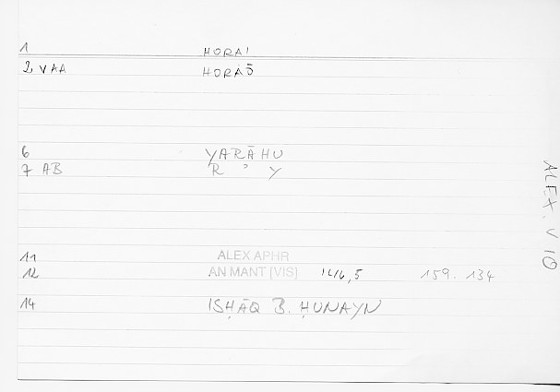 1 HORAI
2 VAA HORAŌ
6 YARĀHU
7 AB R ʾ Y
11 ALEX APHR
12 AN MANT [VIS] 146,5 159.134
14 ISḤĀQ B. ḤUNAYN
ALEX. V 10